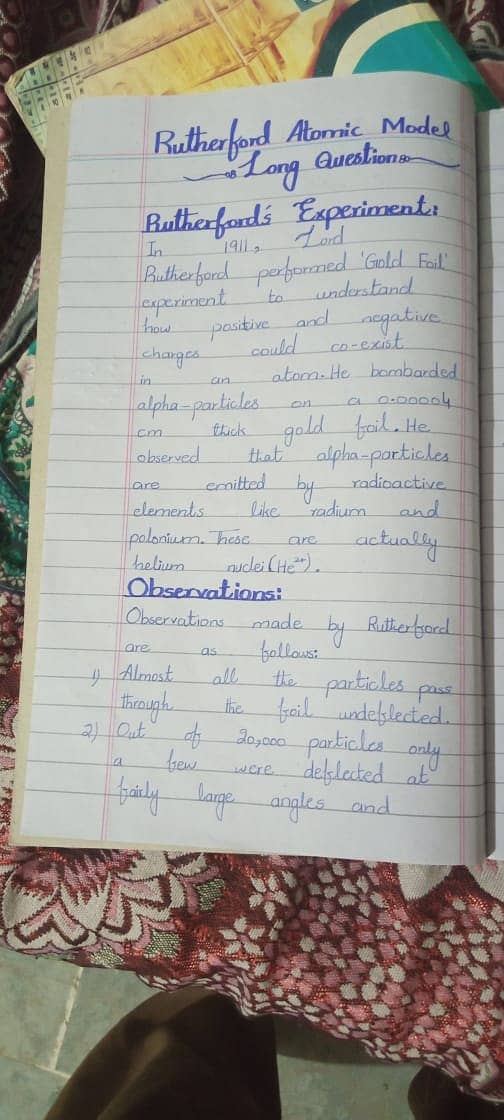 Rutherford Atomic Model
Long Question
Rutherford's Experiment:
In 1911, Lord
Rutherford performed 'Gold Foil'
experiment to understand
how positive and negative
charges could co-exist
in an atom. He bombarded
alpha-particles on a 0.00004
cm thick gold foil. He
observed that alpha-particles
are emitted by radioactive
elements like radium and
polonium. These are actually
helium nuclei (He²⁺).
Observations:
Observations made by Rutherford
are as follows:
1) Almost all the particles pass
through the foil undeflected.
2) Out of 20,000 particles only
a few were deflected at
fairly large angles and